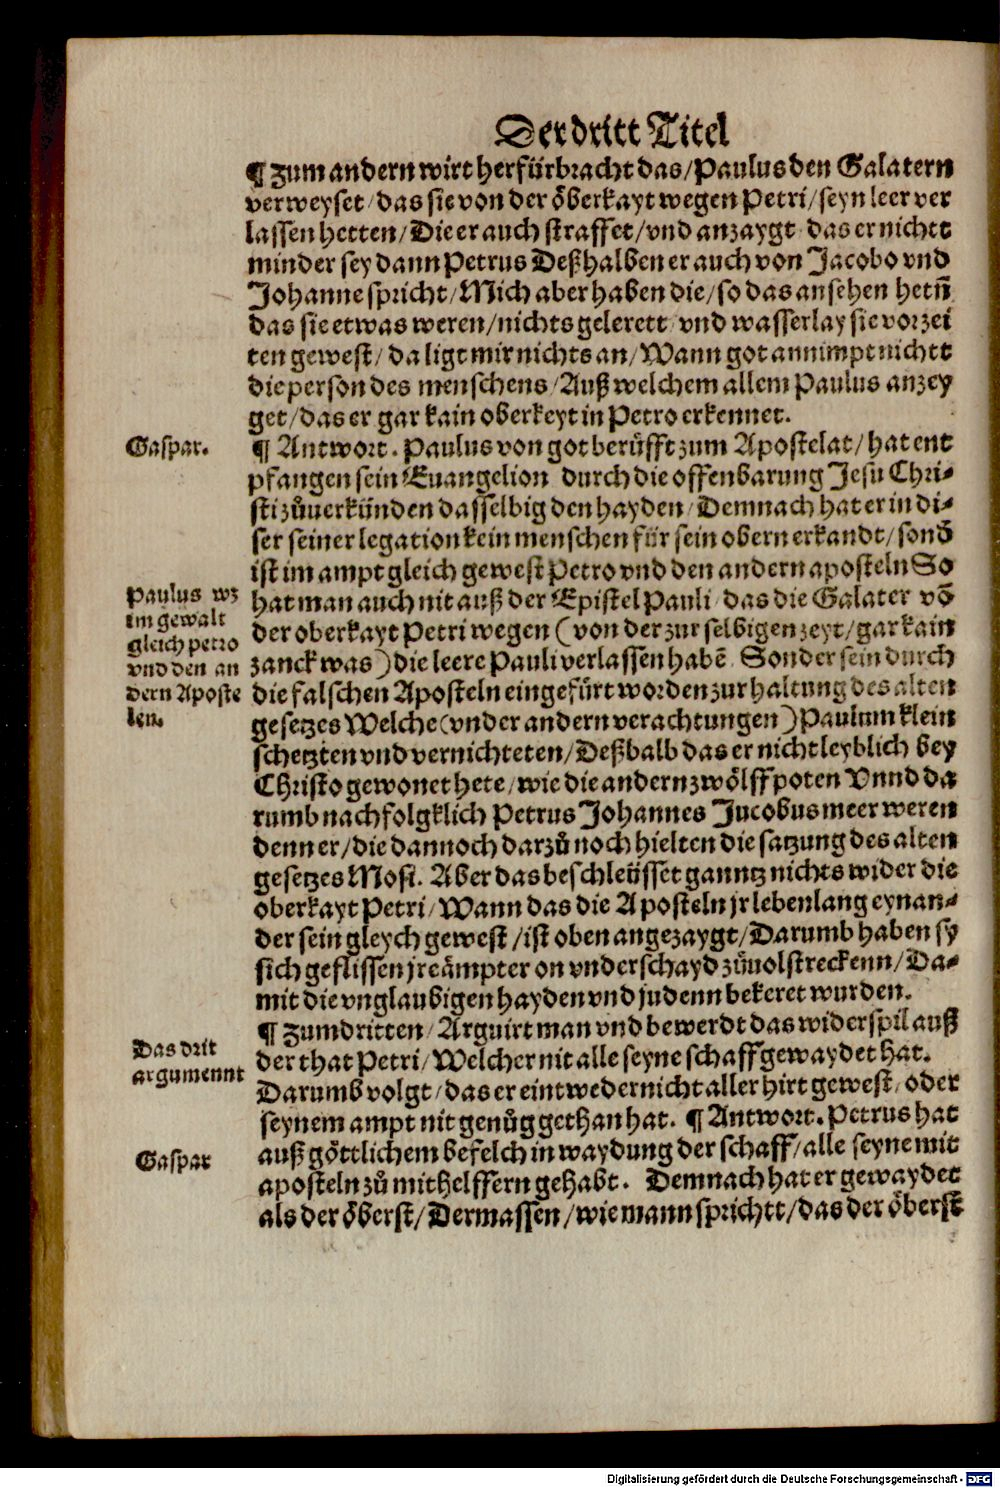 Der dritt Titel
¶ Zum andern wirt herfürbracht das/Paulus den Galatern
verweyset/das sie von der öberkayt wegen Petri/seyn leer ver
lassen hetten/Die er auch straffet/vnd anzaygt das er nichtt
minder sey dann Petrus Deßhalben er auch von Jacobo vnd
Johanne spricht/Mich aber haben die/so das ansehen hetñ
das sie etwas weren/nichts gelerett/vnd wasserlay sie vorzei
ten gewest/da ligt mir nichts an/Wann got annimpt nichtt
die person des menschens/Auß welchem allem Paulus anzey
get/das er gar kain oberkeyt in Petro erkennet.
Gaspar.
¶ Antwort. Paulus von got berüfft zum Apostelat/hat ent
pfangen sein Euangelion durch die offenbarung Jesu Chri-
sti zůuerkünden dasselbig den hayden/Demnach hat er in di-
ser seiner legation kein menschen für sein obern erkandt/sonð
ist im ampt gleich gewest Petro vnd den andern aposteln So
Paulus wz
im gewalt
gleich petro
vnd den an
dern Aposte
len.
hat man auch nit auß der Epistel Pauli/das die Galater võ
der oberkayt Petri wegen (von der zur selbigen zeyt/gar kain
zanck was) die leere Pauli verlassen habẽ Sonder sein durch
die falschen Aposteln eingefürt worden zur haltung des alten
gesetzes Welche (vnder andern verachtungen) Paulum klein
schetzten vnd vernichteten/Deßhalb das er nicht leyblich bey
Christo gewonet hete/wie die andern zwölffpoten Vnnd da
rumb nachfolgklich Petrus Johannes Jacobus meer weren
denn er/die dannoch darzů noch hielten die satzung des alten
gesetzes Mosi. Aber das beschleüsset ganntz nichts wider die
oberkayt Petri/Wann das die Aposteln jr lebenlang eynan-
der sein gleych gewest/ist oben angezaygt/Darumb haben sy
sich geflissen jre ämpter on vnderschayd zůuolstreckenn/Da-
mit die vnglaubigen hayden vnd judenn bekeret wurden.
¶ Zum dritten/Arguirt man vnd bewerdt das widerspil auß
Das drit
argumennt
der that Petri/Welcher nit alle seyne schaff gewaydet hat.
Darumb volgt/das er eintweder nicht aller hirt gewest/oder
seynem ampt nit genůg gethan hat. ¶ Antwort. Petrus hat
Gaspar
auß göttlichem befelch in waydung der schaff/alle seyne mit
aposteln zů mithelffern gehabt. Demnach hat er gewaydet
als der öberst/Dermassen/wie mann sprichtt/das der öberst
Digitalisierung gefördert durch die Deutsche Forschungsgemeinschaft - DFG